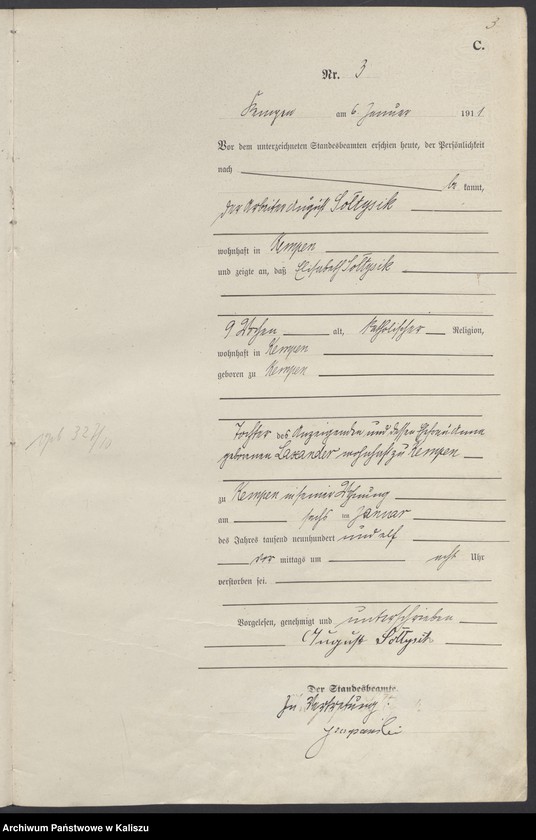 3
C.
Nr. 3
Kempen am 6 Januar 1911
Vor dem unterzeichneten Standesbeamten erschien heute, der Persönlichkeit
nach
be kannt,
der Arbeiter August Sołtysik
wohnhaft in Kempen
und zeigte an, daß Elisabeth Sołtysik
9 Wochen alt, katholischer Religion,
wohnhaft in Kempen
geboren zu Kempen
Tochter des Anzeigenden und dessen Ehefrau Anna
geborenen Laxander wohnhaft zu Kempen
geb 327/10
zu Kempen in seiner Wohnung
am sechs ten Januar
des Jahres tausend neunhundert und elf
vor mittags um acht Uhr
verstorben sei.
Vorgelesen, genehmigt und unterschrieben
August Sołtysik
Der Standesbeamte.
In Vertretung
Archiwum Państwowe w Kaliszu